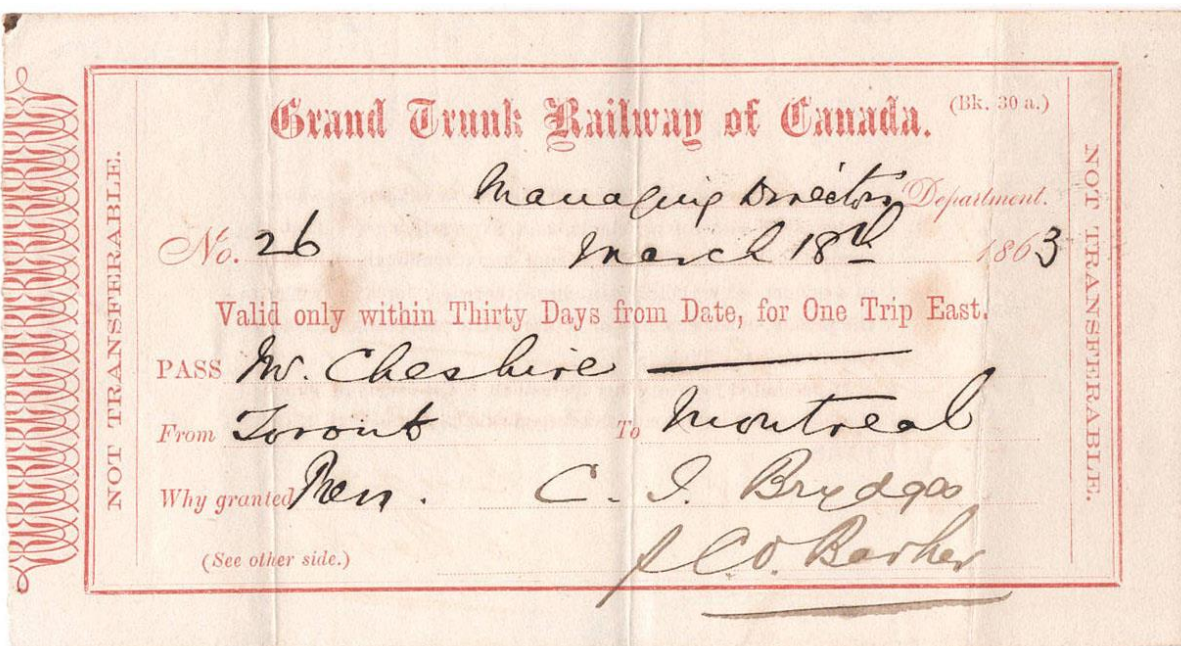 Grand Trunk Railway of Canada. (Bk. 30 a.)
Managing Director's Department.
No. 26 March 18th 1863
Valid only within Thirty Days from Date, for One Trip East.
PASS Mr. Cheshire
From Toronto To Montreal
Why granted Press. C. J. Brydges
(See other side.) Barker
NOT TRANSFERABLE.
NOT TRANSFERABLE.